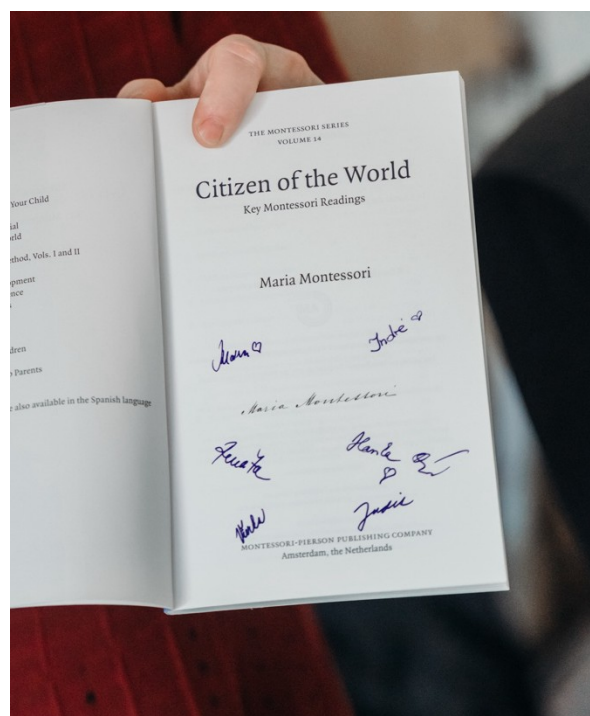 Your Child
ial
orld
ethod, Vols. I and II
opment
ence
dren
o Parents
e also available in the Spanish language
THE MONTESSORI SERIES
VOLUME 14
Citizen of the World
Key Montessori Readings
Maria Montessori
Indrė
Maria Montessori
Renata
MONTESSORI-PIERSON PUBLISHING COMPANY
Amsterdam, the Netherlands